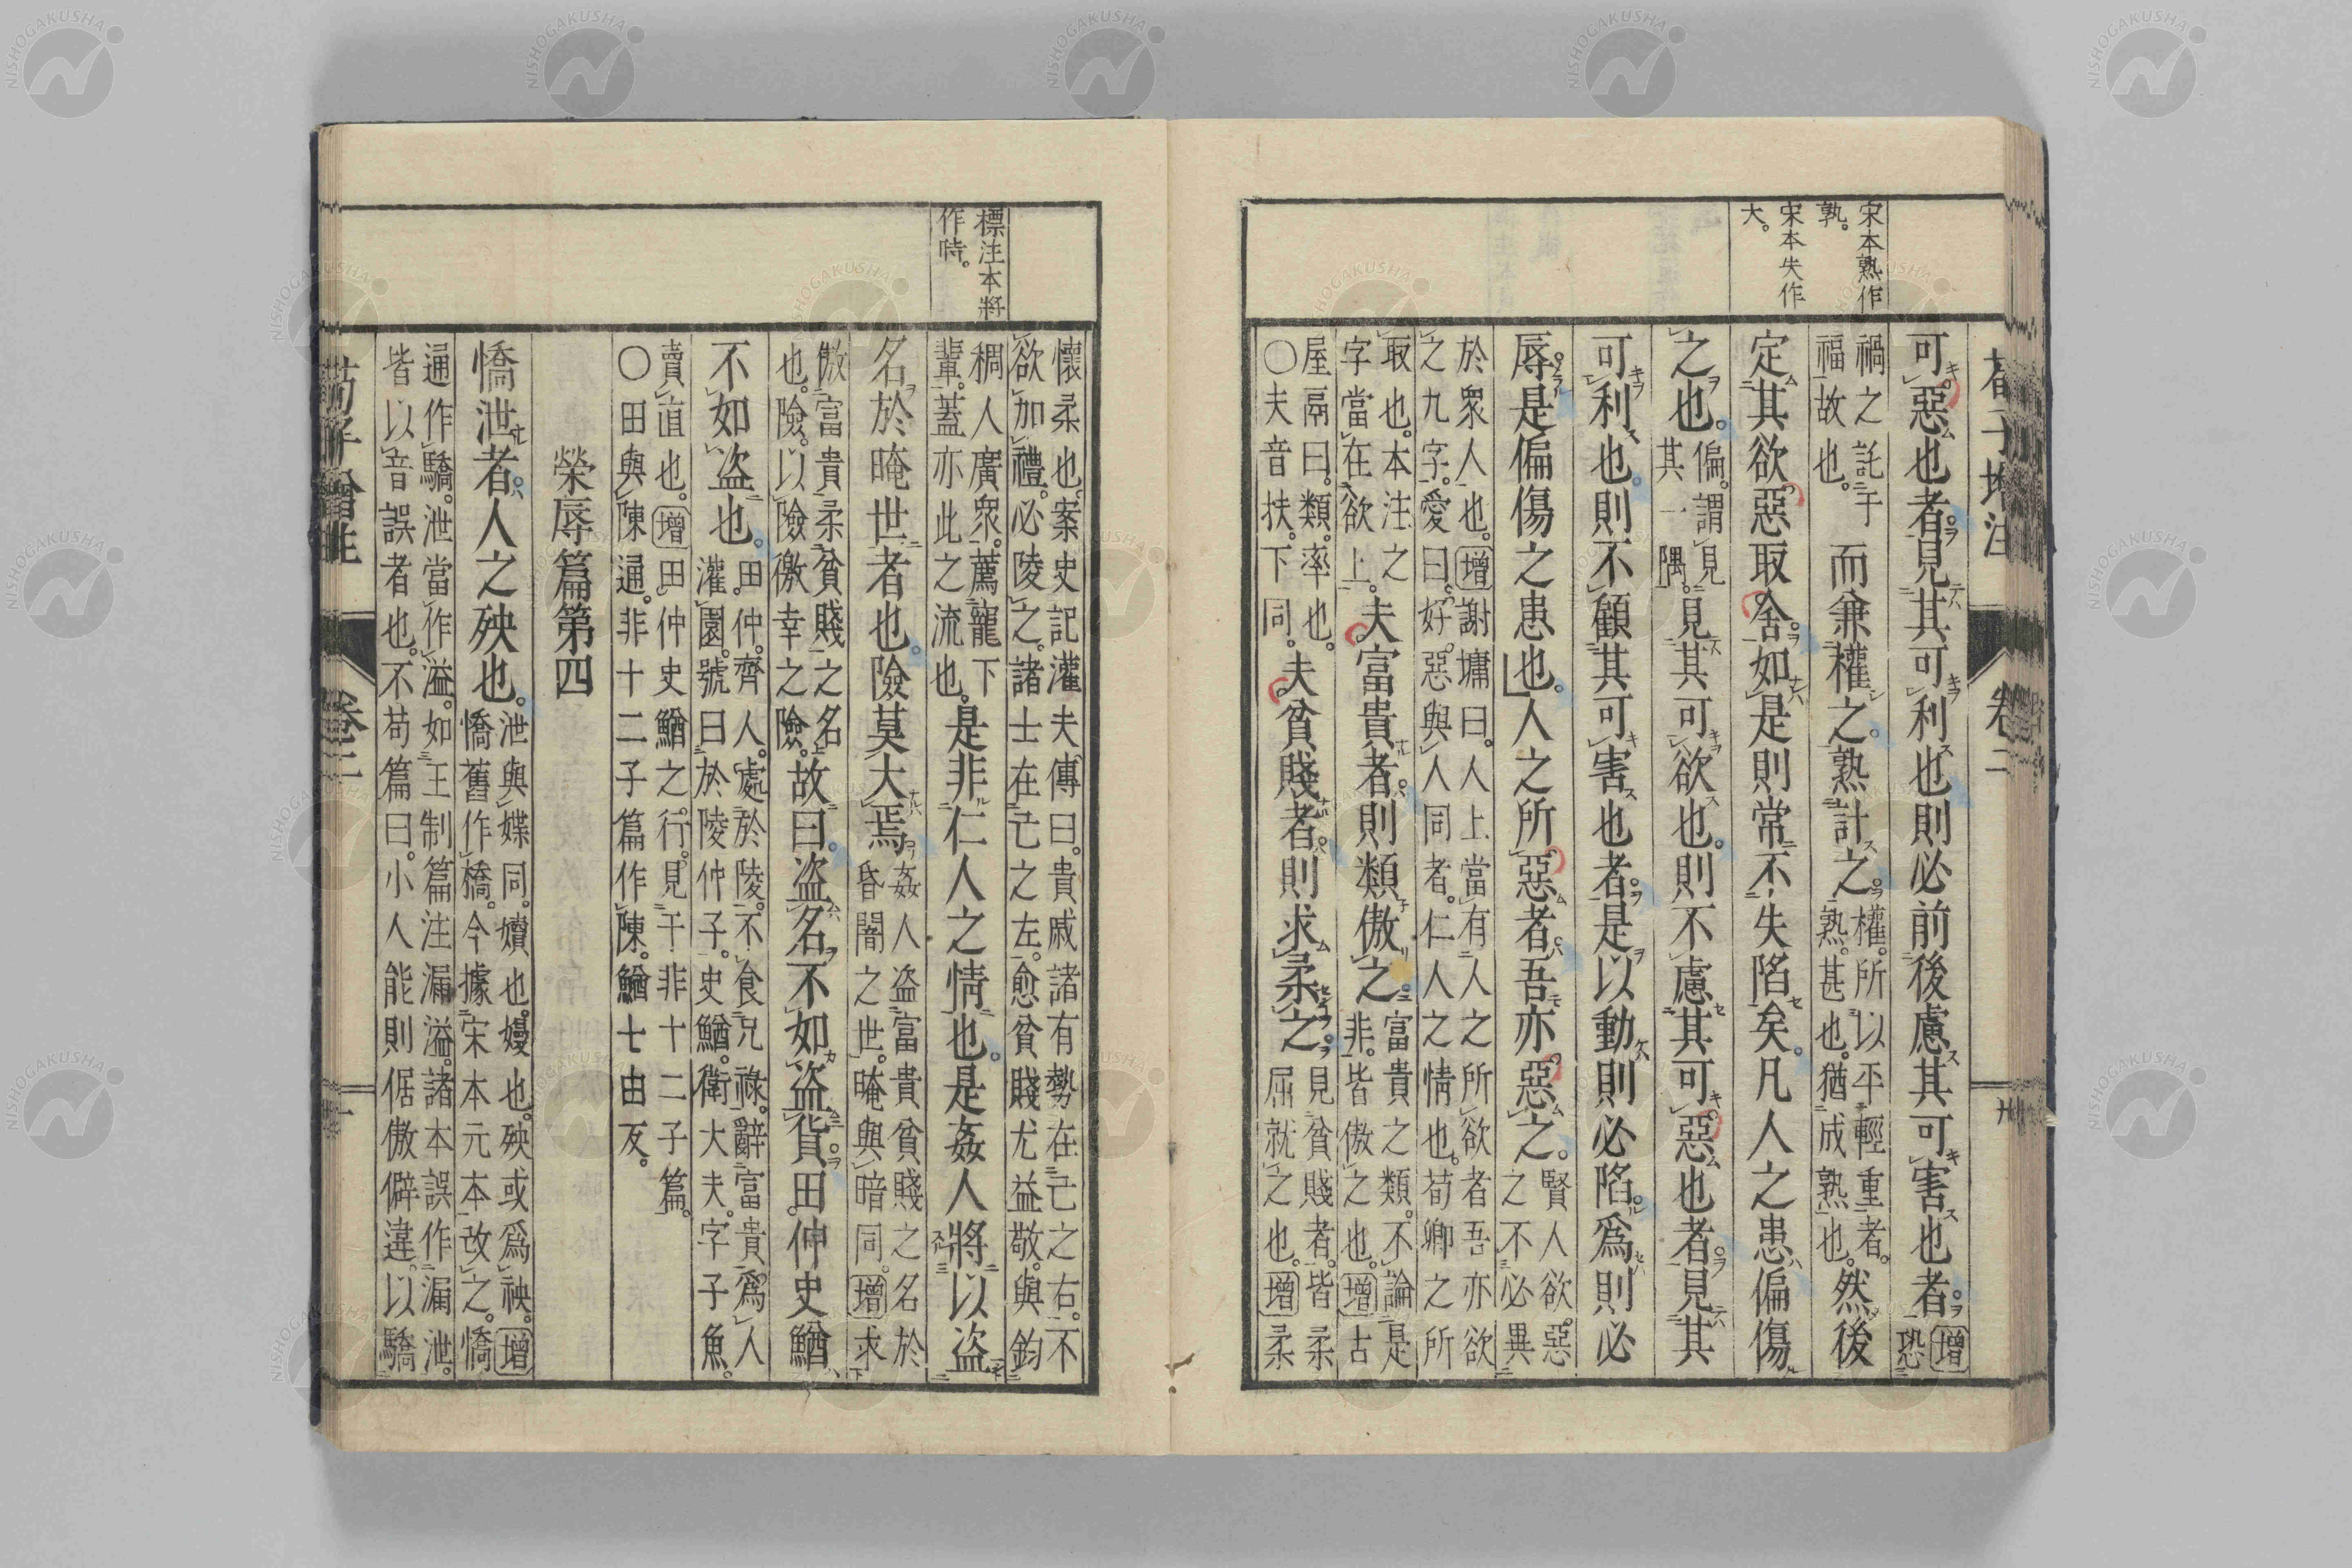 荀子增注 卷二
宋本熟作
孰。
宋本失作
大。
可惡也者。見其可利也則必前後慮其可害也者。增恐
禍之託于福故也。而兼權之。熟計之。權。所以平輕重者。熟。甚也。猶成熟也。然後
定其欲惡取舍。如是則常不失陷矣。凡人之患偏傷
之也。偏。謂見其一隅。見其可欲也。則不慮其可惡也者。見其
可利也。則不顧其可害也者。是以動則必陷。爲則必
辱。是偏傷之患也。人之所惡者。吾亦惡之。賢人欲惡之不必異
於衆人也。增謝墉曰。人上當有人之所欲者吾亦欲之九字。愛曰。好惡與人同者。仁人之情也。荀卿之所
取也。本注之字當在欲上。夫富貴者。則類傲之。富貴之類。不論是非。皆傲之也。增古
屋鬲曰。類。率也。〇夫音扶。下同。夫貧賤者。則求柔之。見貧賤者。皆柔屈就之也。增柔
標注本將
作時。
懷柔也。案史記灌夫傳曰。貴戚諸有勢在己之右。不欲加禮。必陵之。諸士在己之左。愈貧賤尤益敬。與鈞
稠人廣衆。薦寵下輩。蓋亦此之流也。是非仁人之情也。是姦人將以盜
名於晻世者也。險莫大焉。姦人盜富貴貧賤之名於昏闇之世。晻與暗同。增求
傲富貴柔貧賤之名也。險。以險徼幸之險。故曰。盜名不如盜貨。田仲史鰌
不如盜也。田仲。齊人。處於陵。不食兄祿。辭富貴。爲人灌園。號曰於陵仲子。史鰌。衛大夫。字子魚。
賣直也。增田仲史鰌之行。見于非十二子篇。〇田與陳通。非十二子篇作陳。鰌七由反。
榮辱篇第四
憍泄者。人之殃也。泄與媟同。嬻也。嫚也。殃或爲祅。增憍舊作橋。今據宋本元本改之。憍
通作驕。泄當作溢。如王制篇注漏溢。諸本誤作漏泄。皆以音誤者也。不苟篇曰。小人能則倨傲僻違。以驕
荀子增注 卷二